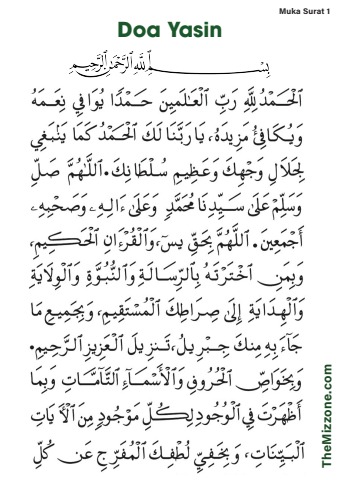 Muka Surat 1
Doa Yasin
بِسْمِ اللَّهِ الرَّحْمَٰنِ الرَّحِيمِ
اَلْحَمْدُ لِلَّهِ رَبِّ الْعَالَمِينَ حَمْدًا يُوَافِي نِعَمَهُ
وَيُكَافِئُ مَزِيدَهُ، يَا رَبَّنَا لَكَ الْحَمْدُ كَمَا يَنْبَغِي
لِجَلَالِ وَجْهِكَ وَعَظِيمِ سُلْطَانِكَ. اَللَّهُمَّ صَلِّ
وَسَلِّمْ عَلَىٰ سَيِّدِنَا مُحَمَّدٍ وَعَلَىٰ ءَالِهِۦ وَصَحْبِهِۦ
أَجْمَعِينَ. اللَّهُمَّ بِحَقِّ يسٓ، وَالْقُرْءَانِ الْحَكِيمِ،
وَبِمَنِ اخْتَرْتَهُ بِالرِّسَالَةِ وَالنُّبُوَّةِ وَالْوِلَايَةِ
وَالْهِدَايَةِ إِلَىٰ صِرَاطِكَ الْمُسْتَقِيمِ، وَبِجَمِيعِ مَا
جَآءَ بِهِ مِنكَ جِبْرِيلُ، تَنزِيلَ الْعَزِيزِ الرَّحِيمِ.
وَبِخَوَاصِّ الْحُرُوفِ وَالْأَسْمَآءِ التَّآمَّاتِ وَبِمَا
أَظْهَرْتَ فِي الْوُجُودِ لِكُلِّ مَوْجُودٍ مِنَ الْأٓيَاتِ
الْبَيِّنَاتِ، وَبِخَفِيِّ لُطْفِكَ الْمُفَرِّجِ عَن كُلِّ
TheMizzone.com